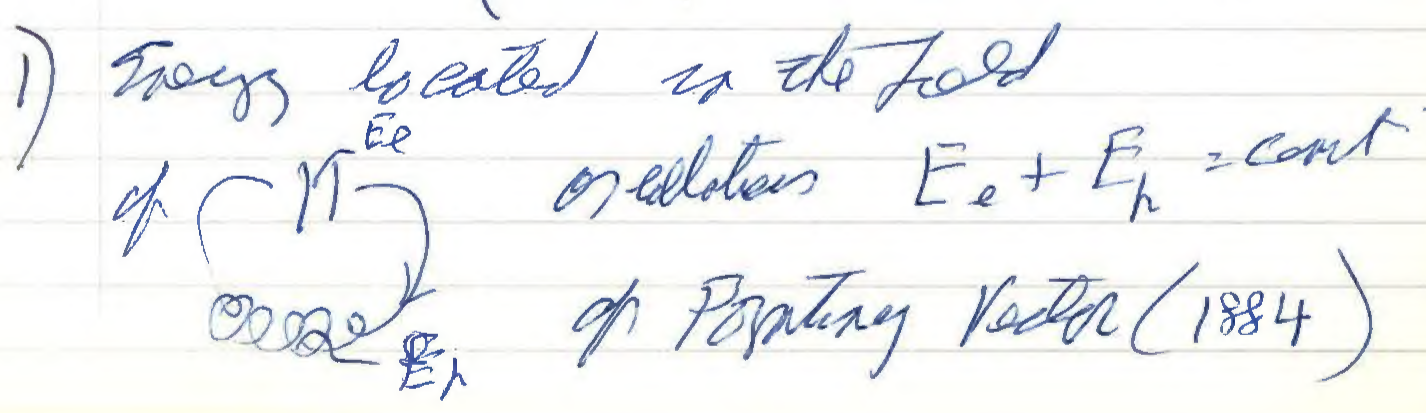 1) Energy located in the Field
Ee
cf oscillations E_e + E_h = const
E_h cf Poynting Vector (1884)